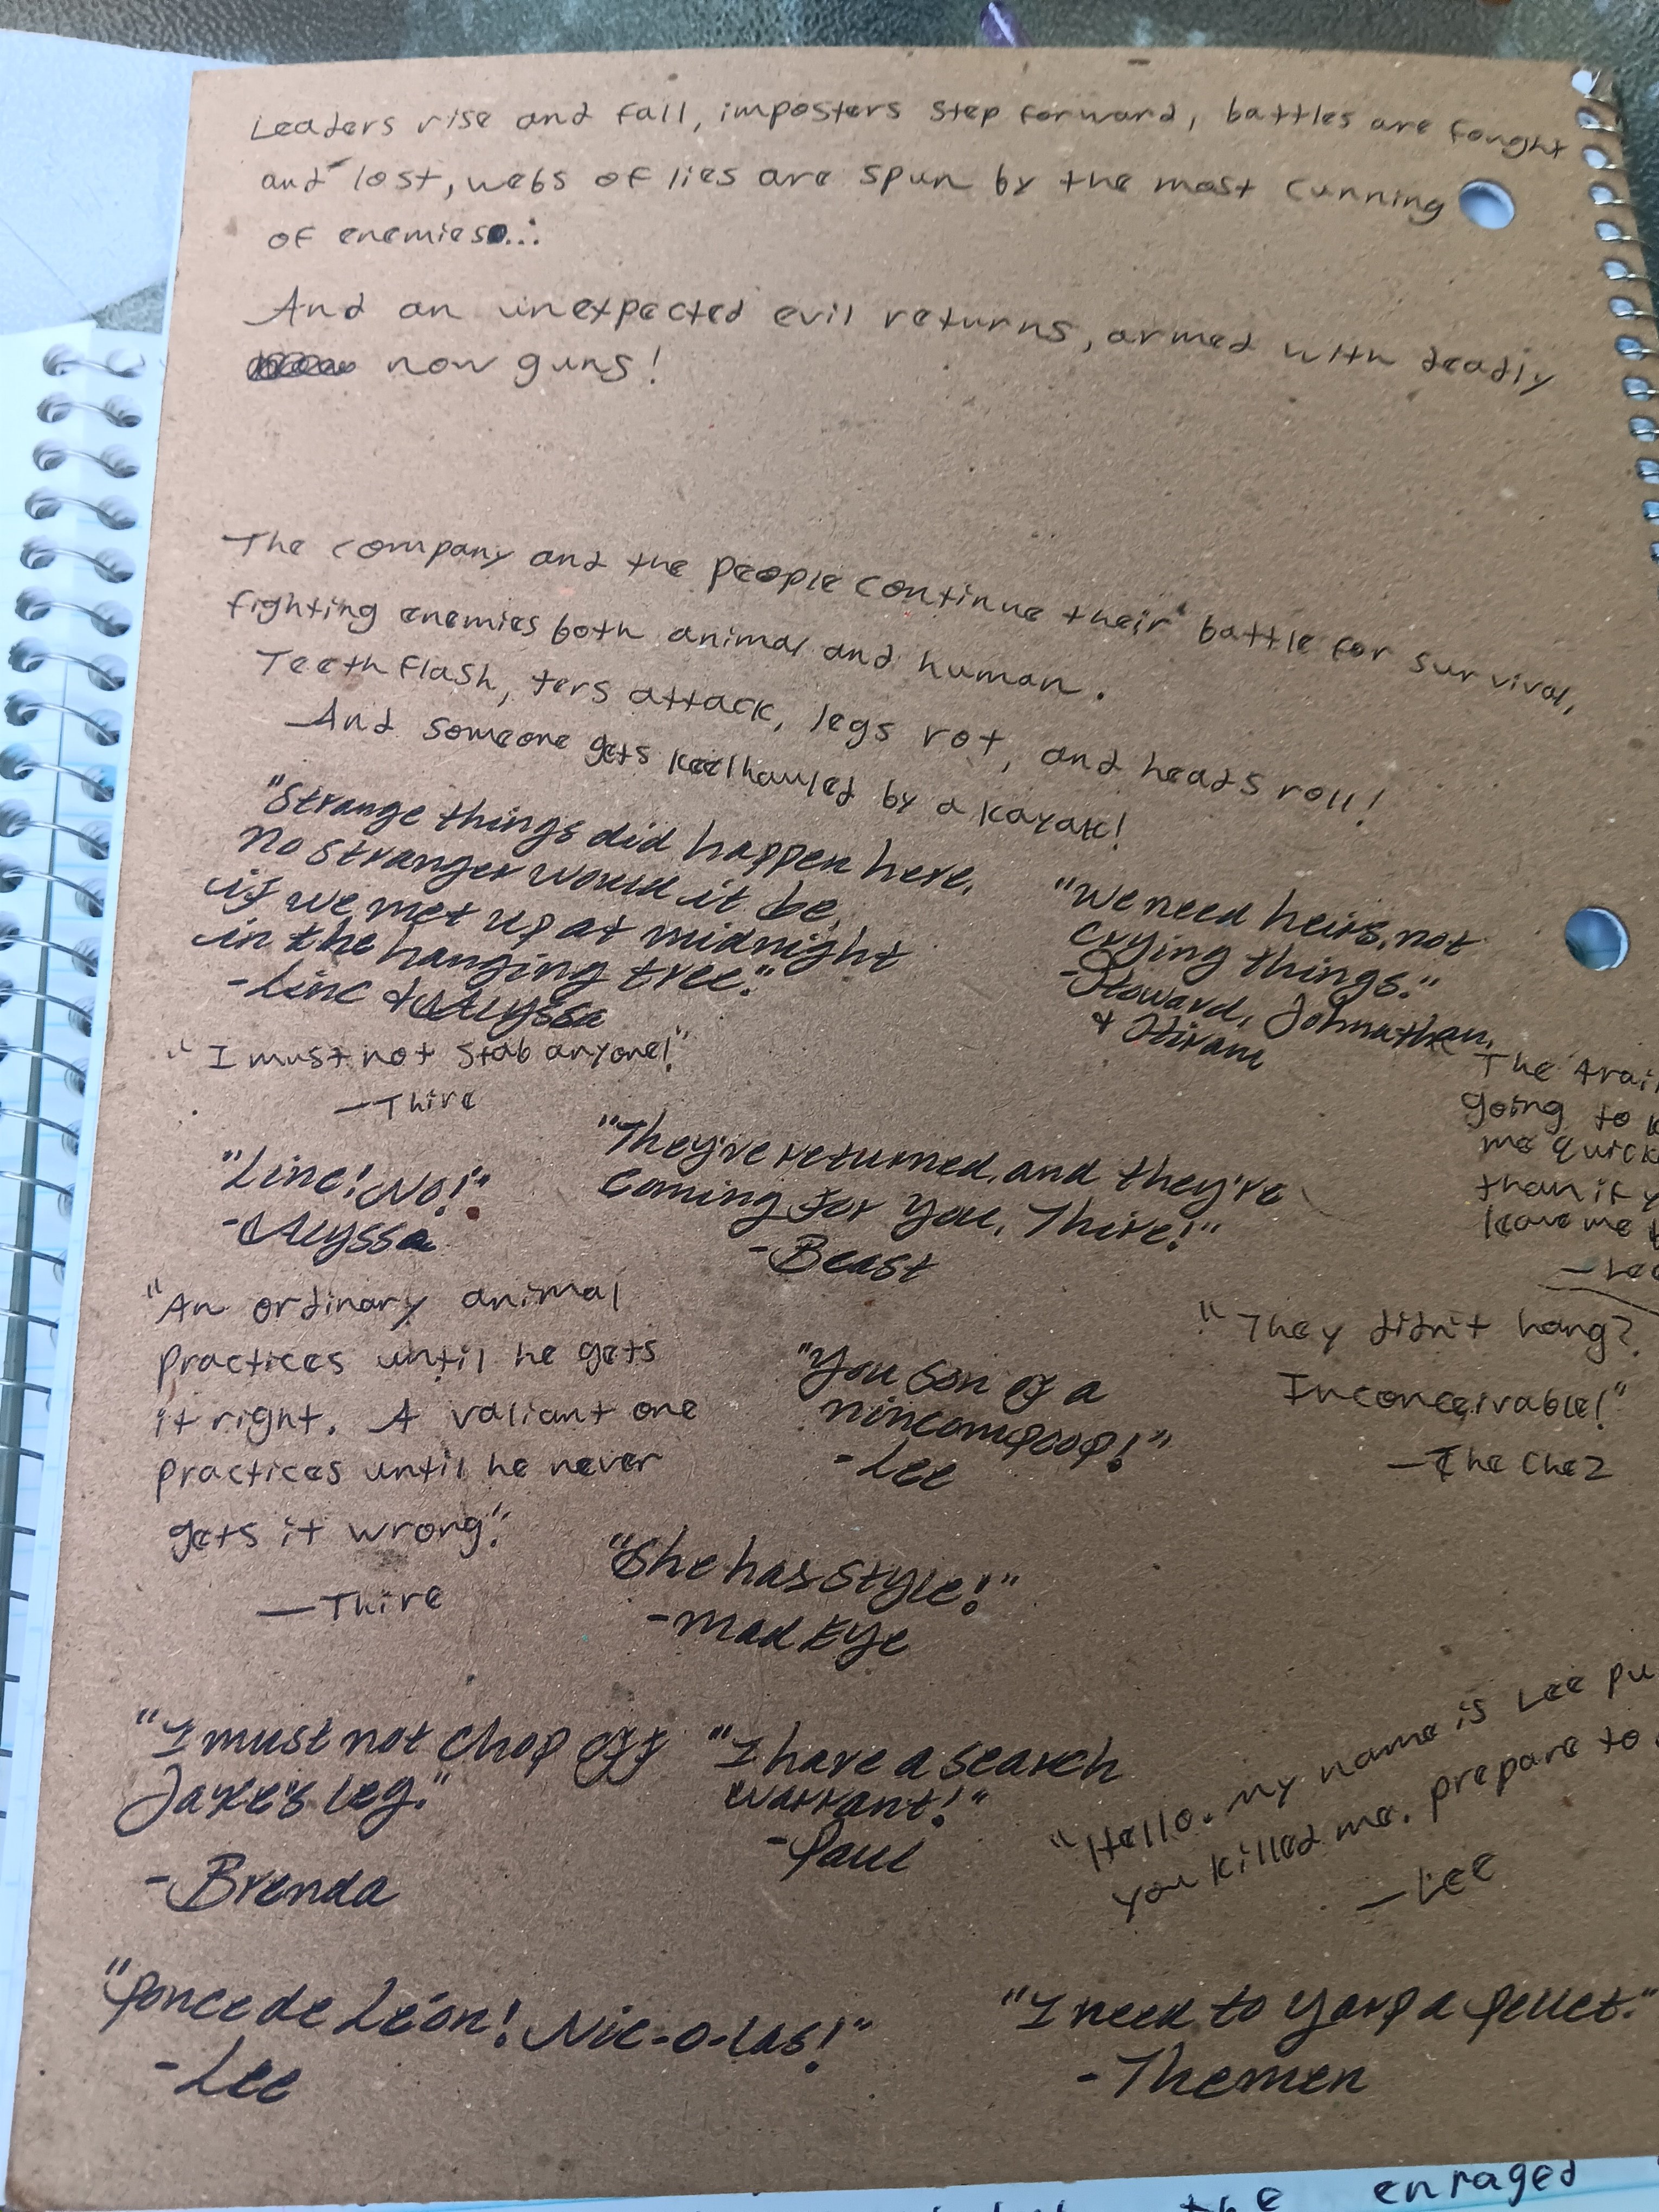 Leaders rise and fall, imposters step forward, battles are fought
and lost, webs of lies are spun by the most cunning
of enemies...
And an unexpected evil returns, armed with deadly
now guns!
The company and the people continue their battle for survival,
fighting enemies both animal and human.
Teeth flash, ters attack, legs rot, and heads roll!
And someone gets keelhauled by a kayak!
"Strange things did happen here,
No stranger would it be,
if we met up at midnight
in the hanging tree."
-Linc & Alyssa
"We need heirs, not
crying things."
-Howard, Johnathan,
& Hiram
"I must not stab anyone!"
—Thire
The
going to
me
than if
leave me
"Linc! No!"
-Alyssa
"They've returned, and they're
coming for you, Thire!"
-Beast
"An ordinary animal
practices until he gets
it right. A valiant one
practices until he never
gets it wrong."
—Thire
"You son of a
nincompoop!"
-Lee
"They didn't hang?
Inconceivable!"
—The Chez
"She has style!"
-Mad Eye
"I must not chop off
Jaxe's leg."
-Brenda
"I have a search
warrant!"
-Paul
"Hello. My name is Lee
you killed me. prepare to
—Lee
"Ponce de Léon! Nic-o-las!"
-Lee
"I need to yarp a pellet."
-Themen
the enraged